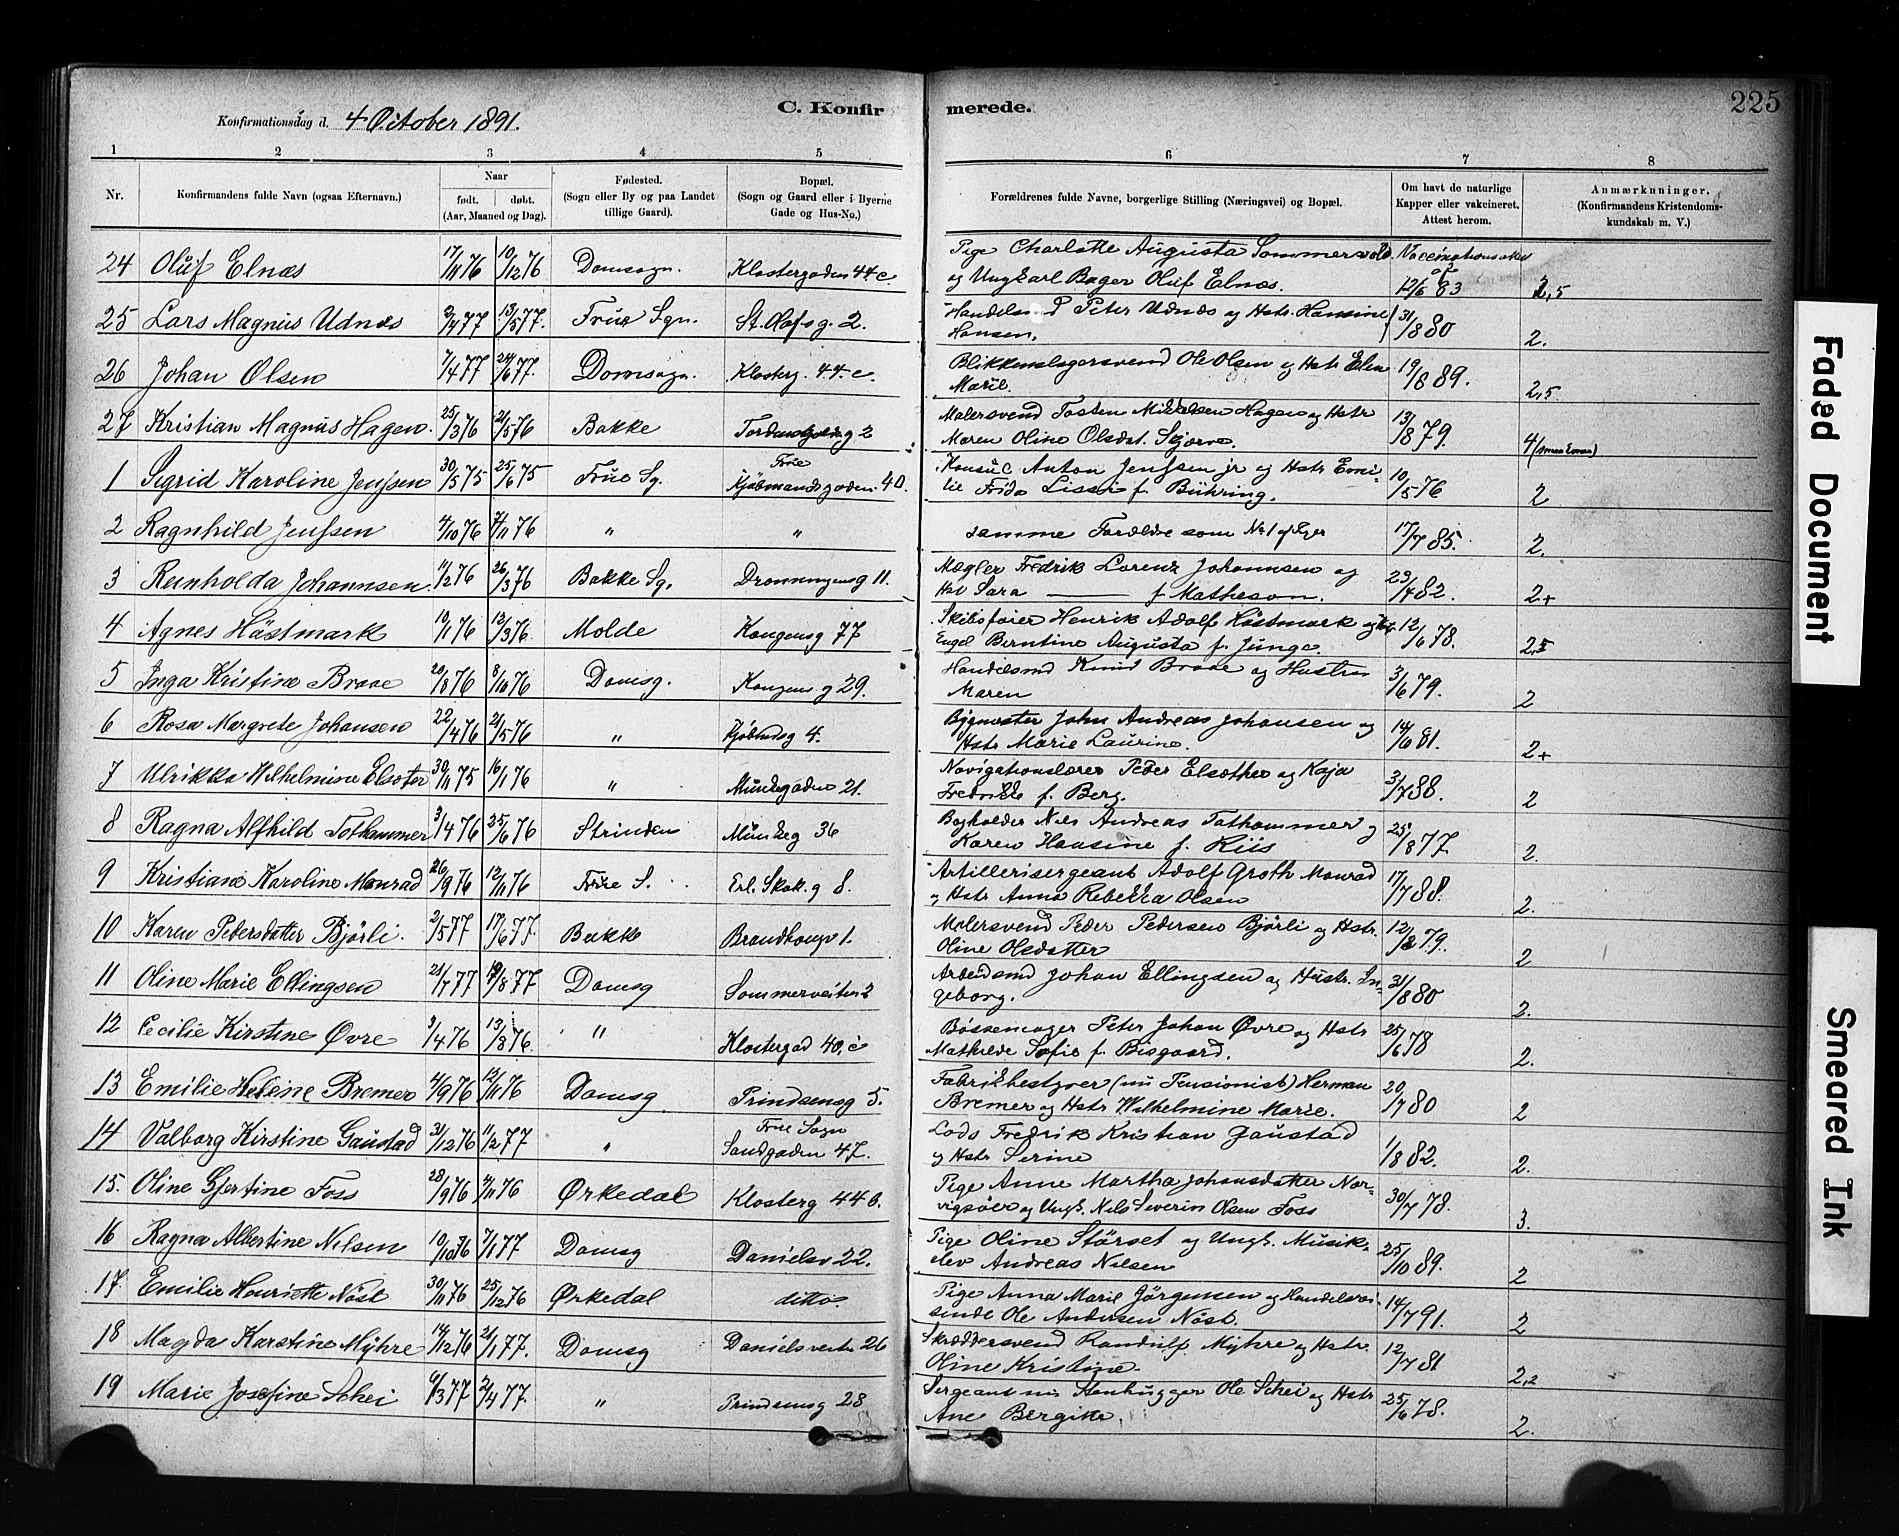 Konfirmationsdag d. 4 October 1891. C. Konfirmerede. 225
1 2 3 4 5 6 7 8
Nr. Konfirmandens fulde Navn (ogsaa Efternavn.) Naar født. døbt. (Aar, Maaned og Dag). Fødested. (Sogn eller By og paa Landet tillige Gaard). Bopæl. (Sogn og Gaard eller i Byerne Gade og Hus-No.) Forældrenes fulde Navne, borgerlige Stilling (Næringsvei) og Bopæl. Om havt de naturlige Kapper eller vakcineret. Attest herom. Anmærkninger. (Konfirmandens Kristendomskundskab m. V.)
24 Oluf Elnæs 17/11 76 10/12 76 Domsogn. Klostergaden 44 c. Pige Charlotte Augusta Sommervold
og Ungkarl Bager Oluf Elnæs. 12/6 83 2,5
25 Lars Magnus Udnæs 2/4 77 13/5 77. Frue Sgn. St. Olafsg. 2. Handelsmd Peter Udnæs og Hstr. Hansine
Hansen. 31/8 80 2.
26 Johan Olsen 7/4 77 24/6 77. Domsogn. Klosterg. 44. c. Blikkenslagersvend Ole Olsen og Hstr Elen
Marie. 19/8 89. 2,5
27 Kristian Magnus Hagen. 25/3 76 21/5 76 Bakke Tordenskjoldsg 2 Malersvend Tosten Mikkelsen Hagen og Hstr
Maren Oline Olsdat. Skjerve. 13/8 79. 4
1 Sigrid Karoline Jenssen 30/5 75 25/6 75 Frue Sg. Frue
Kjøbmandsgaden 40. Konsul Anton Jenssen jr og Hstr Emi-
lie Frida Lissi f. Bühring. 10/5 76 2
2 Ragnhild Jenssen 4/10 76 /11 76 " " samme Forældre som No 1 af Piger 17/7 85. 2.
3 Reinholda Johannsen. 11/2 76 26/3 76 Bakke Sg. Dronningensg 11. Mægler Fredrik Lorenz Johannsen og
Hst Sara — f Matheson. 23/4 82. 2+
4 Agnes Höstmark 10/1 76 12/3 76. Molde Kongensg 77 Skibsfører Henrik Adolf Höstmark og Hst.
Engel Berntine Augusta f. Junge. 12/6 78. 2,5
5 Inga Kristine Braae 20/8 76 8/10 76 Domsg. Kongensg 29. Handelsmd Knud Braae og Hustru
Maren 3/6 79. 2
6 Rosa Margrete Johansen 22/4 76 21/5 76 " Kjøbmdsg 4. Bygmester John Andreas Johansen og
Hstr Marie Laurine. 14/6 81. 2+
7 Ulrikka Wilhelmine Elsæter 30/11 75 16/1 76 " Munkegaden 21. Navigationslærer Peder Elsæther og Kaja
Fredrikke f. Berg. 3/7 88. 2
8 Ragna Alfhild Tofhammer 3/4 76 25/6 76 Strinden Munkeg 36 Bogholder Nils Andreas Tofhammer og
Karen Hansine f. Riis 25/8 77. 2.
9 Kristiane Karoline Monrad 26/9 76 12/11 76 Frue S. Erl. Skak. g 8. Artillerisergeant Adolf Groth Monrad
og Hstr Anna Rebekka Olsen 17/7 88. 2.
10 Karen Pedersdatter Bjørli. 2/5 77 17/6 77. Bakke Brandhaugv 1. Malersvend Peder Pedersen Bjørli og Hstr.
Oline Olsdatter 12/8 79. 2
11 Oline Marie Ellingsen 21/7 77 19/8 77 Domsg Sommerveiten 2 Arbeidsmd Johan Ellingsen og Hustr. In-
geborg. 31/8 80 2.
12 Cecilie Kirstine Øvre 9/4 76 13/8 76. " Klostergad 40, c Bøssemager Peter Johan Øvre og Hstr
Mathilde Sofie f. Bisgaard. 25/6 78 2.
13 Emilie Helene Bremer 4/9 76 12/11 76 Domsg Prindsensg 5. Fabrikbestyrer (nu Pensionist) Herman
Bremer og Hstr Wilhelmine Marie. 20/7 80 2
14 Valborg Kirstine Gaustad 31/12 76 11/2 77 " Frue Sogn
Sandgaden 47. Lods Fredrik Kristian Gaustad
og Hstr Serine 1/8 82. 2.
15. Oline Gjertine Foss 28/9 76 /11 76 Ørkedal Klosterg 44 b. Pige Anne Martha Johansdatter Nar-
vigsöer og Ungk. Nils Severin Olsen Foss 30/7 78. 3.
16 Ragna Albertine Nilsen 10/10 76 7/1 77 Domsg Danielsv 22. Pige Oline Störset og Ungk. Musik-
elev Andreas Nilsen 25/10 89. 2
17. Emilie Henriette Nöst 30/11 76 25/12 76 Ørkedal ditto. Pige Anna Marie Jörgensen og Handelsrei-
sende Ole Andersen Nöst. 14/7 91. 2
18 Magda Karstine Myhre 14/12 76 21/1 77. Domsg Danielsveiten 26 Skræddersvend Randulf Myhre og Hstr.
Oline Kristine. 12/7 81 2,2
19 Marie Josefine Schei 6/3 77 2/4 77. " Prindsensg 28 Sergeant nu Stenhugger Ole Schei og Hstr
Ane Bergitte. 25/6 78. 2.
Faded Document
Smeared Ink